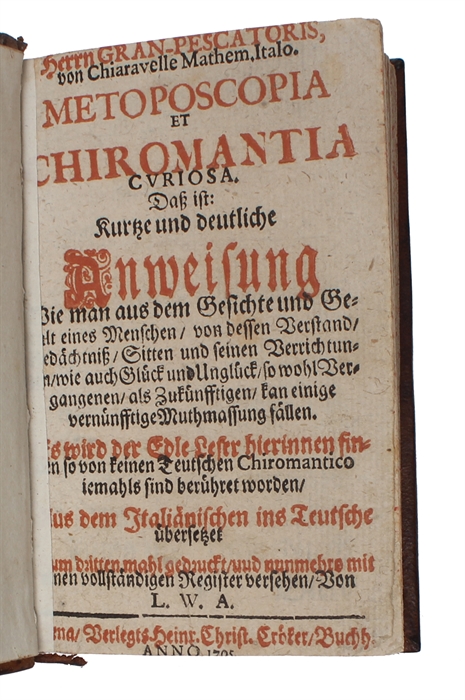 Herrn GRAN-PESCATORIS,
von Chiaravelle Mathem. Italo.
METOPOSCOPIA
ET
CHIROMANTIA
CVRIOSA.
Daß ist:
Kurtze und deutliche
Anweisung
Wie man aus dem Gesichte und Ge-
alt eines Menschen / von dessen Verstand /
edächtniß / Sitten und seinen Verrichtun-
n / wie auch Glück und Unglück / so wohl Ver-
gangenen / als Zukünfftigen / kan einige
vernünfftige Muthmassung fällen.
Es wird der Edle Leser hierinnen fin-
en so von keinen Teutschen Chiromantico
iemahls sind berühret worden /
Aus dem Italiänischen ins Teutsche
übersetzet
um dritten mahl gedruckt / und nunmehro mit
nen vollständigen Register versehen / Von
L. W. A.
ena / Verlegts Heinr. Christ. Cröker / Buchh.
ANNO 1705